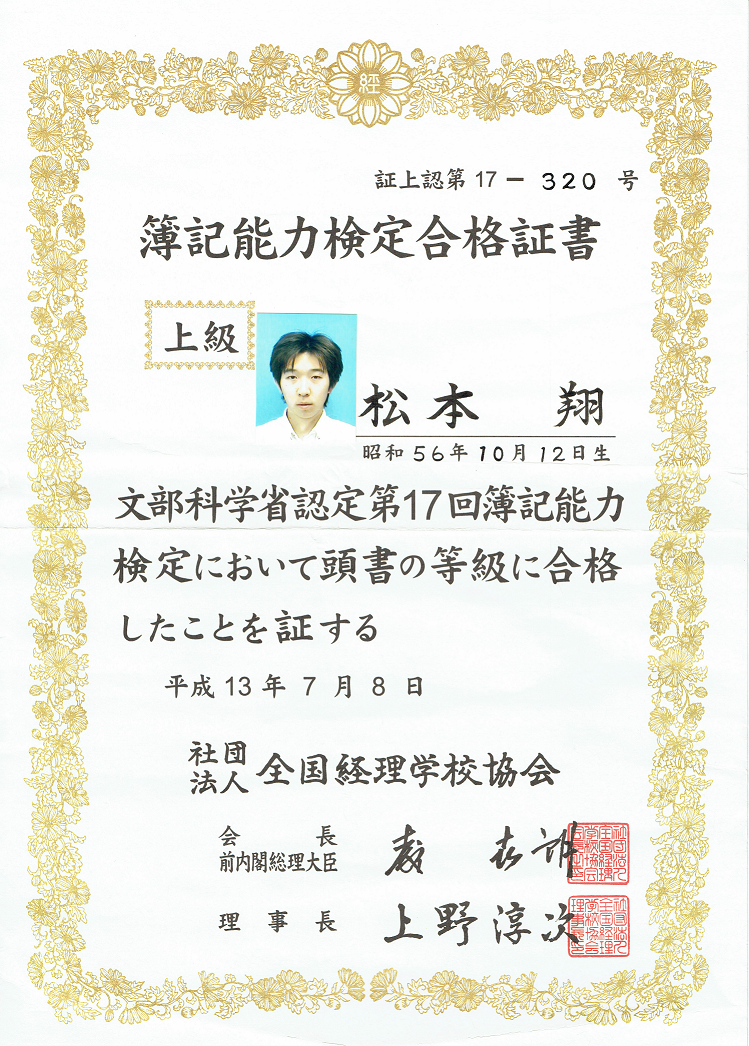 経
証上認第17－320号
簿記能力検定合格証書
上級
松本 翔
昭和56年10月12日生
文部科学省認定第17回簿記能力
検定において頭書の等級に合格
したことを証する
平成13年7月8日
社団法人 全国経理学校協会
会長
前内閣総理大臣
理事長 上野淳次